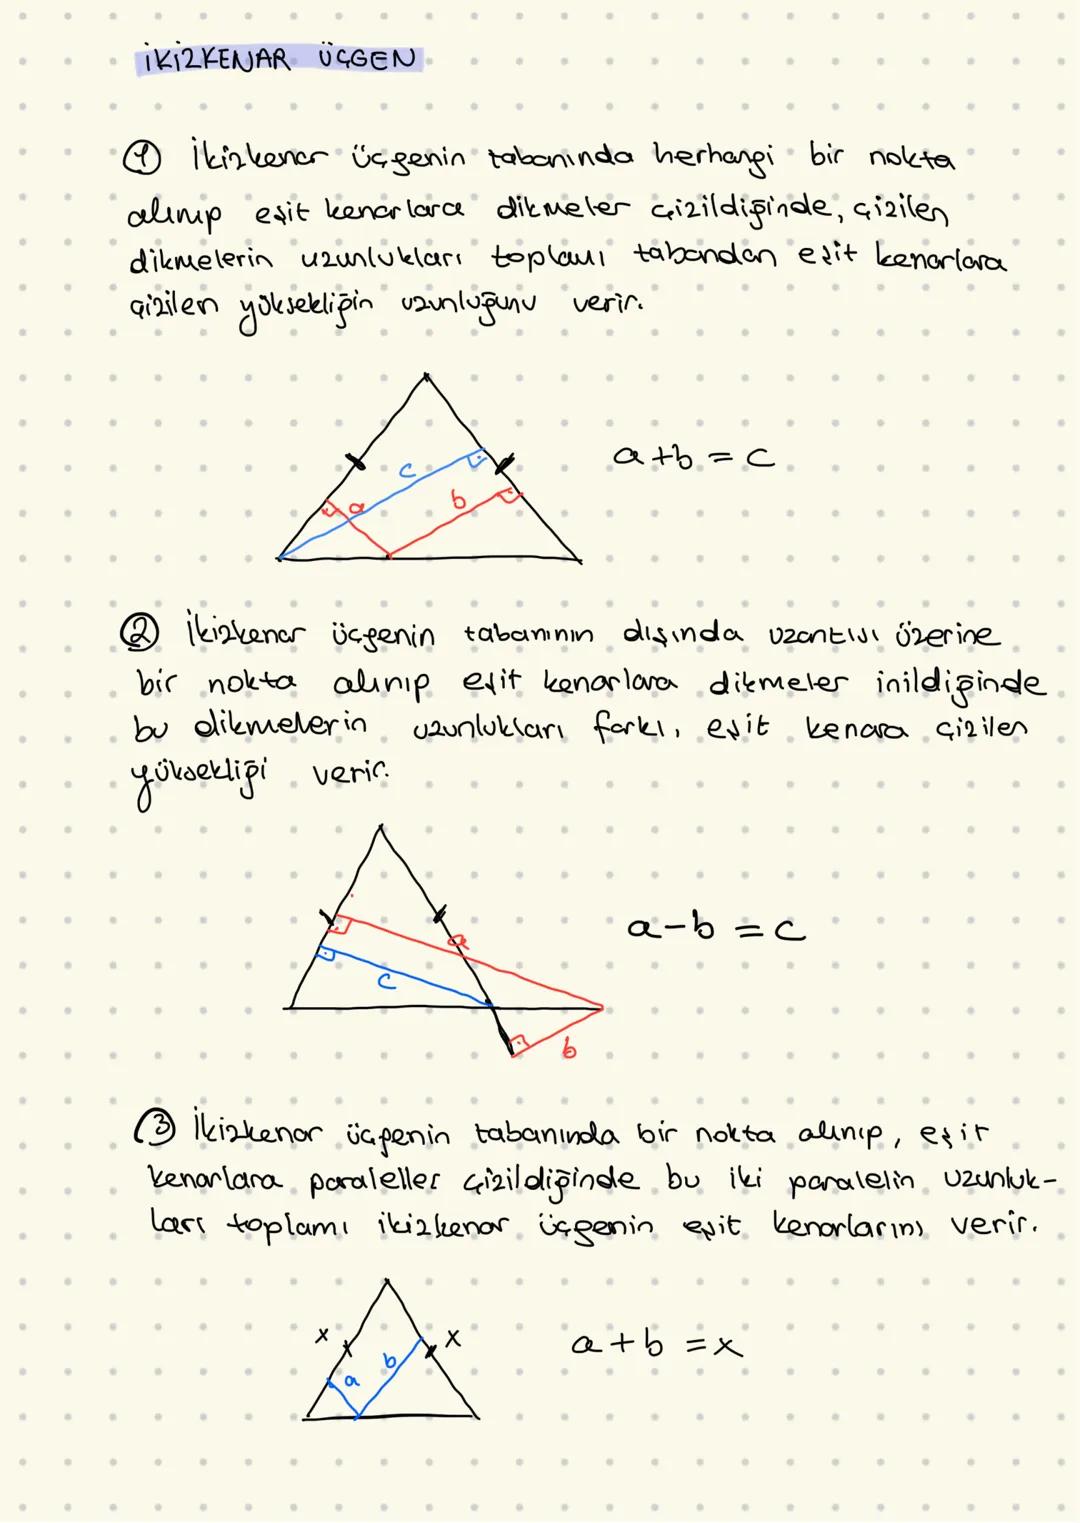 İKİZKENAR ÜÇGEN
① İkizkenar üçgenin tabanında herhangi bir nokta
alınıp eşit kenarlara dikmeler çizildiğinde, çizilen
dikmelerin uzunlukları toplamı tabandan eşit kenarlara
çizilen yüksekliğin uzunluğunu verir.
c
a
b
a+b = c
② İkizkenar üçgenin tabanının dışında uzantısı üzerine
bir nokta alınıp eşit kenarlara dikmeler inildiğinde
bu dikmelerin uzunlukları farkı, eşit kenara çizilen
yüksekliği verir.
a
c
b
a-b = c
③ İkizkenar üçgenin tabanında bir nokta alınıp, eşit
kenarlara paraleller çizildiğinde bu iki paralelin uzunluk-
ları toplamı ikizkenar üçgenin eşit kenarlarını verir.
x
x
a
b
a+b = x